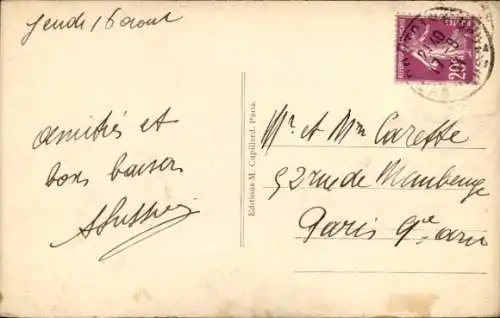 Jeudi 16 aout
amitiés et
bons baisers
Editions M. Capillard, Paris.
20c
Mr et Mm Carette
52 rue de Maubeuge
Paris 9e arr